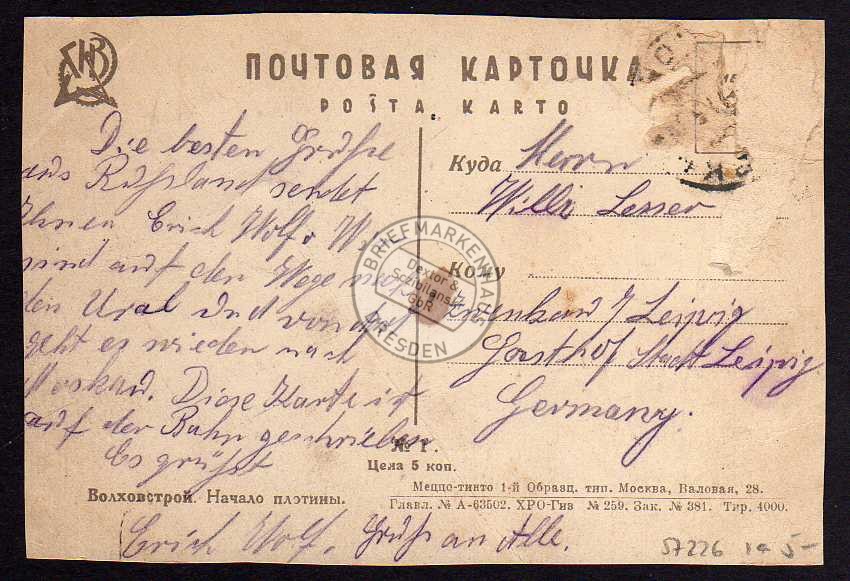 ПОЧТОВАЯ КАРТОЧКА
POŜTA KARTO
Die besten Grüße
aus Rußland sendet
Ihnen Erich Wolf. Wir
sind auf dem Wege nach
den Ural und von dort
geht es wieder nach
Moskau. Diese Karte ist
auf der Bahn geschrieben
Es grüßt
Erich Wolf. Gruß an Alle.
Куда Herrn
Willi Lesser
Кому
Zwenkau / Leipzig
Gasthof Stadt Leipzig
Germany.
№ 1.
Цена 5 коп.
Волховстрой. Начало плотины.
Меццо-тинто 1-й Образц. тип. Москва, Валовая, 28.
Главл. № А-63502. ХРО-Гиз № 259. Зак. № 381. Тир. 4000.
57226 5-
BRIEFMARKENHAUS
Dextor &
GbR
DRESDEN